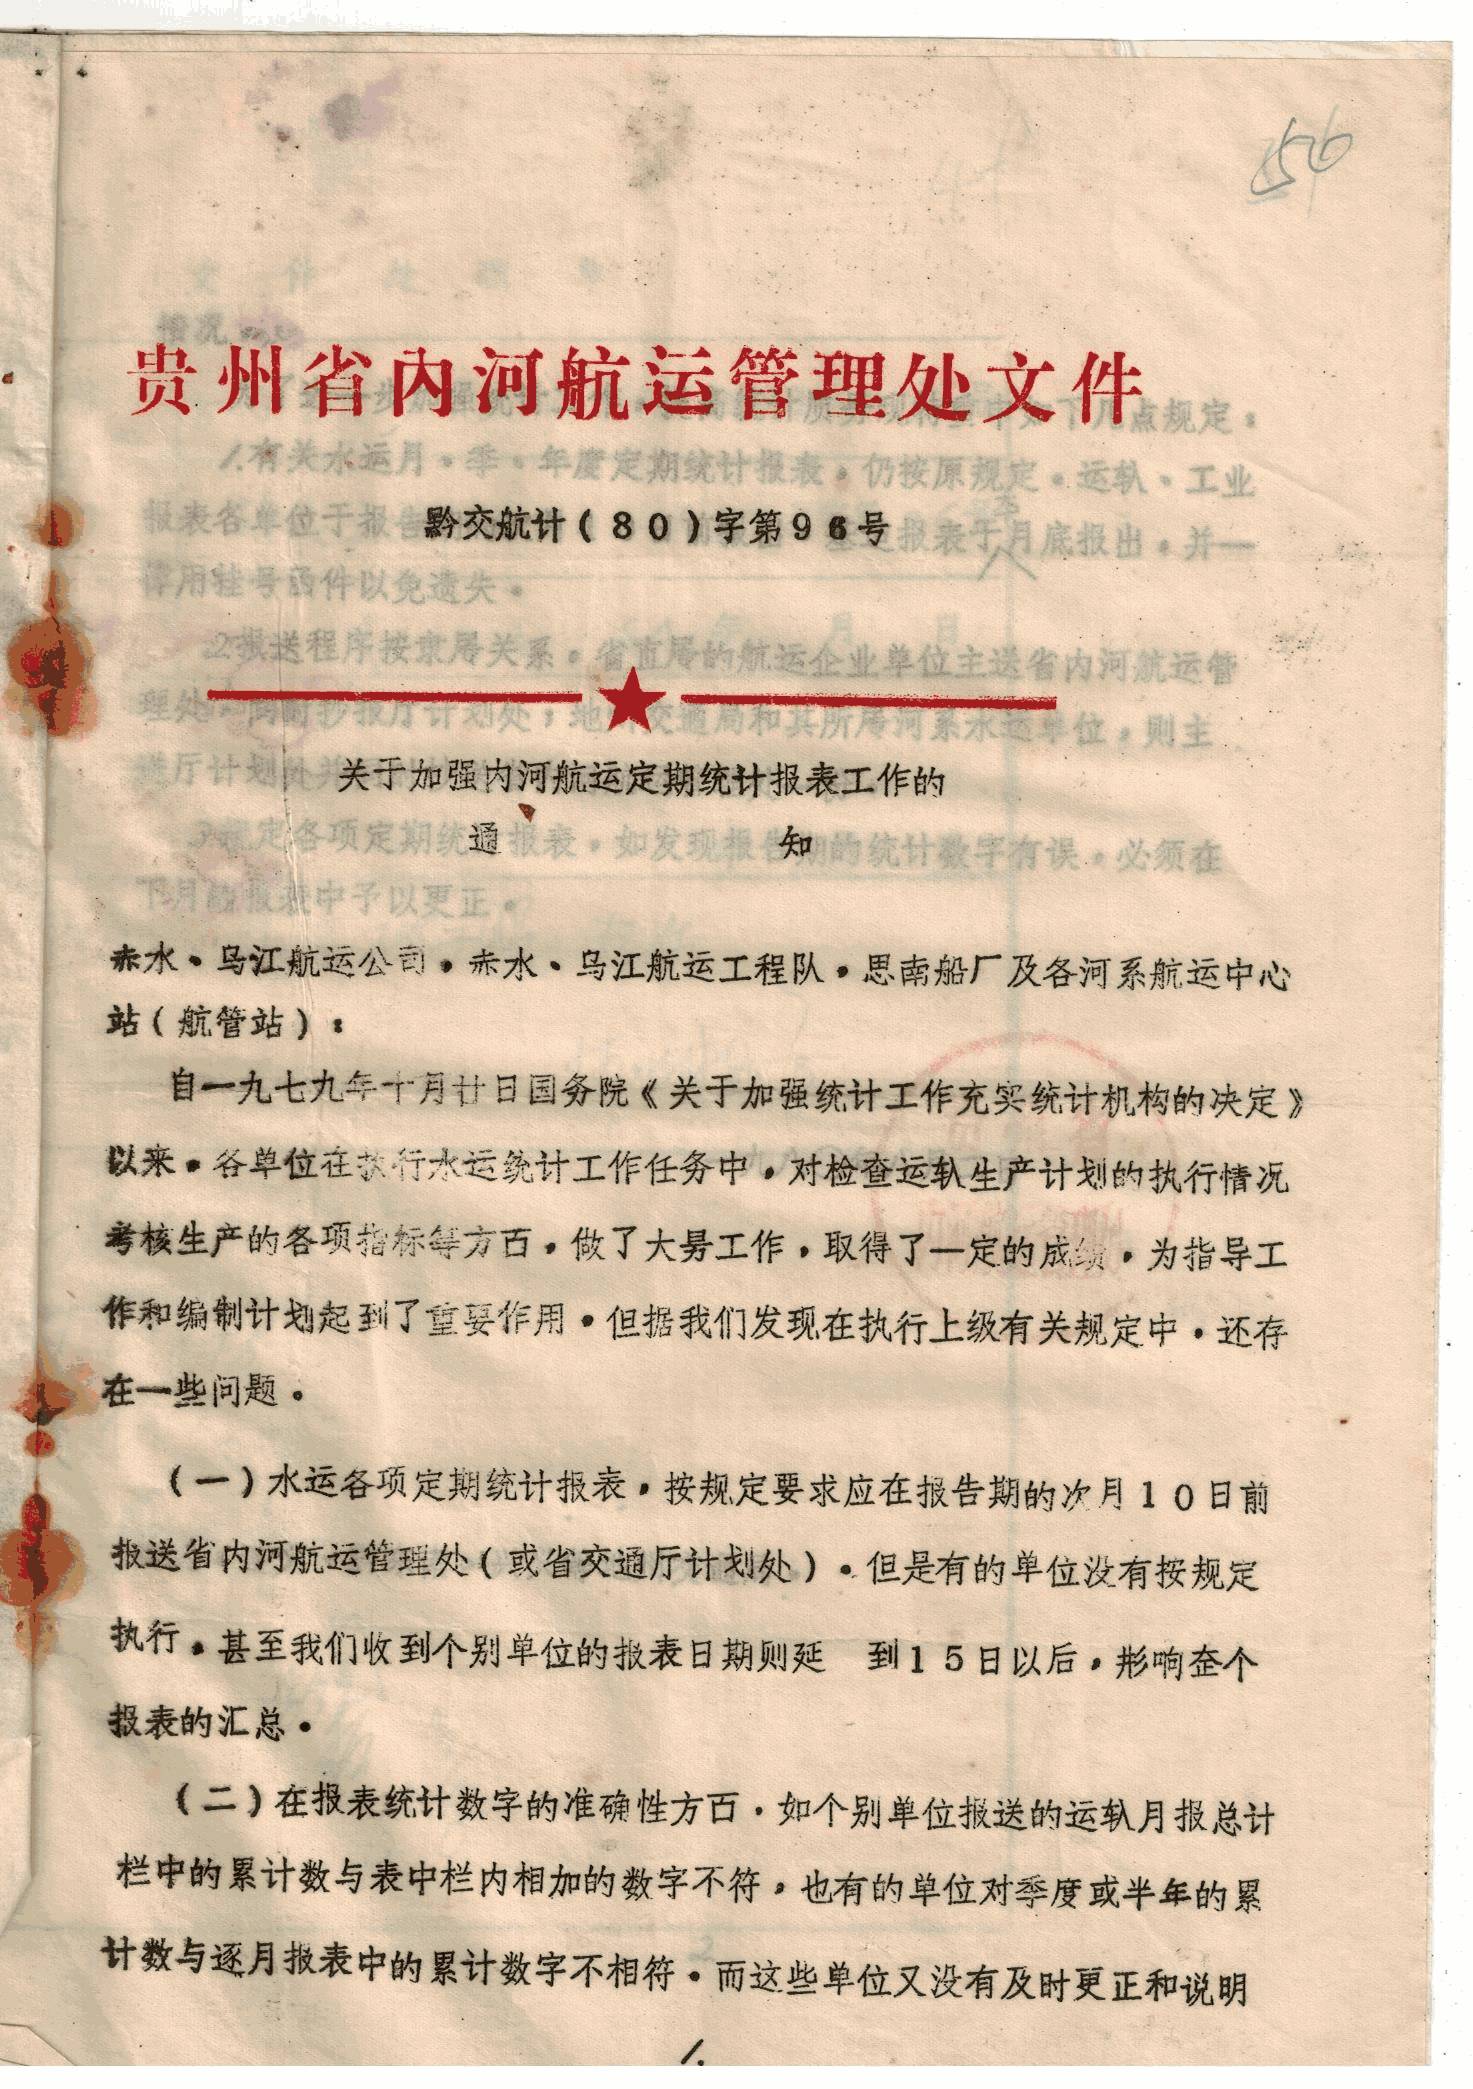 56
贵州省内河航运管理处文件
黔交航计(80)字第96号
关于加强内河航运定期统计报表工作的
通 知
赤水、乌江航运公司，赤水、乌江航运工程队，思南船厂及各河系航运中心
站(航管站)：
自一九七九年十月廿日国务院《关于加强统计工作充实统计机构的决定》
以来，各单位在执行水运统计工作任务中，对检查运轨生产计划的执行情况
考核生产的各项指标等方百，做了大昜工作，取得了一定的成绩，为指导工
作和编制计划起到了重要作用。但据我们发现在执行上级有关规定中，还存
在一些问题。
(一)水运各项定期统计报表，按规定要求应在报告期的次月10日前
报送省内河航运管理处(或省交通厅计划处)。但是有的单位没有按规定
执行，甚至我们收到个别单位的报表日期则延 到15日以后，形响夲个
报表的汇总。
(二)在报表统计数字的准确性方百，如个别单位报送的运轨月报总计
栏中的累计数与表中栏内相加的数字不符，也有的单位对季度或半年的累
计数与逐月报表中的累计数字不相符。而这些单位又没有及时更正和说明
1.